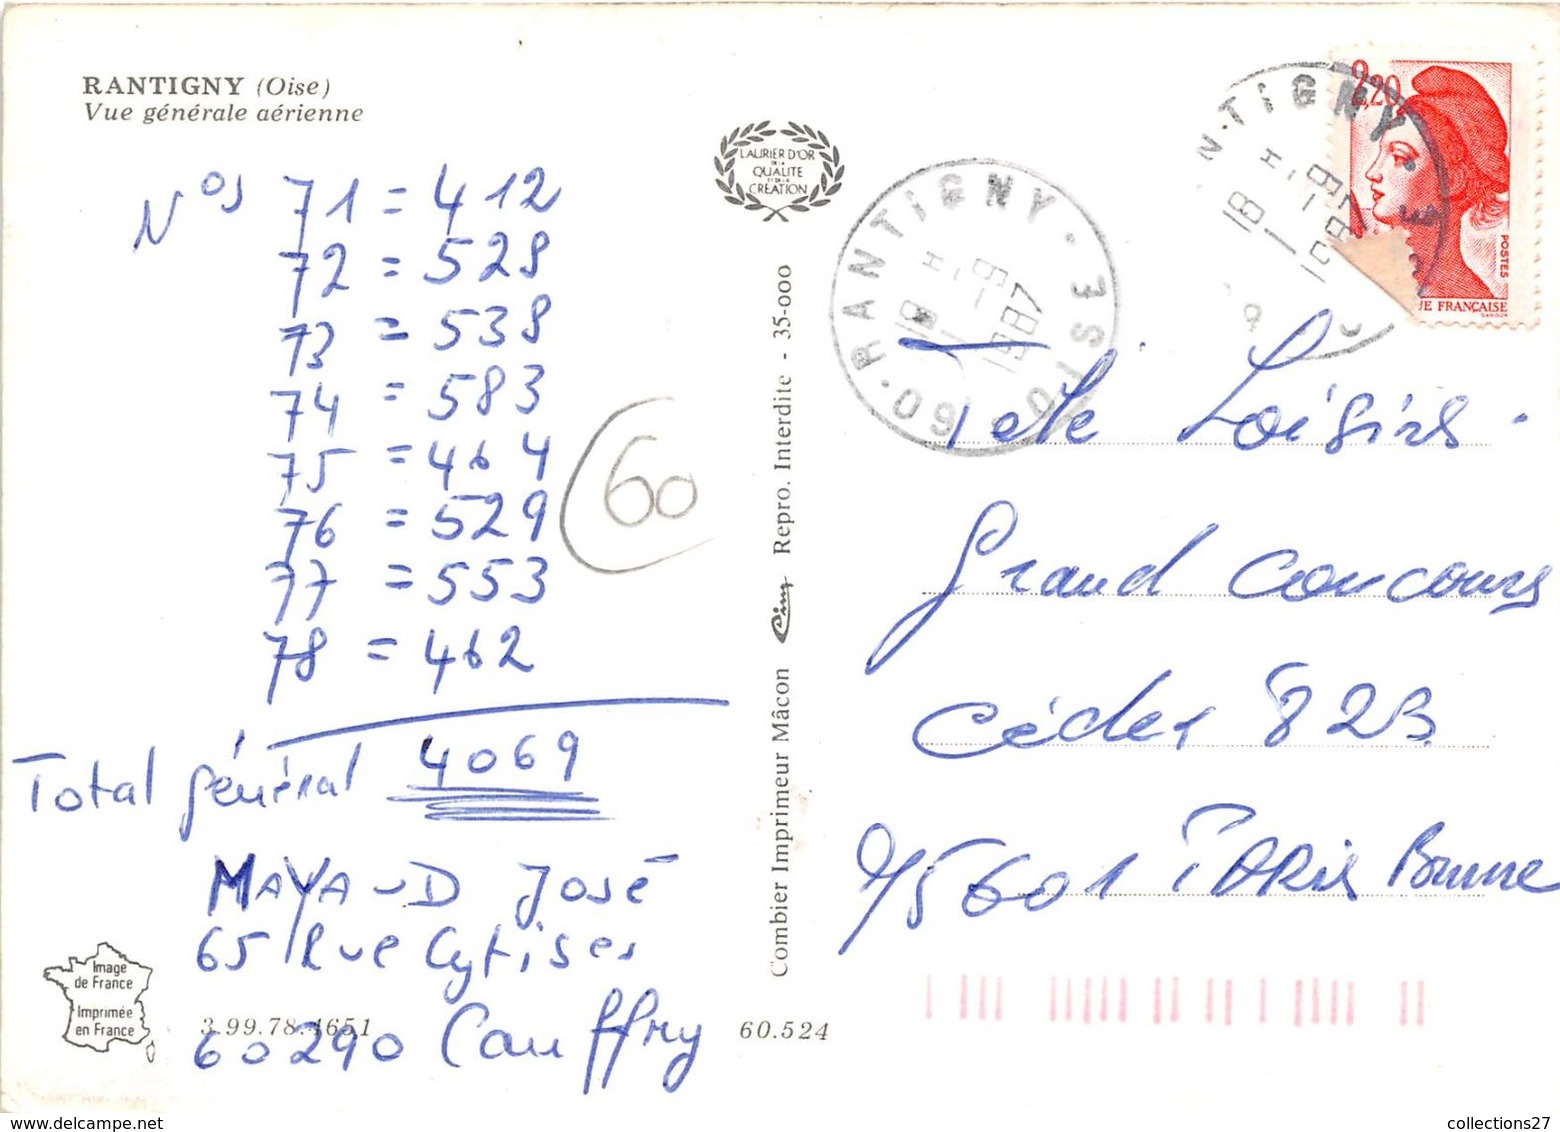 RANTIGNY (Oise)
Vue générale aérienne
LAURIER D'OR
DE LA
QUALITE
ET DE LA
CREATION
Nos 71 = 412
72 = 528
73 = 538
74 = 583
75 = 464
76 = 529
77 = 553
78 = 462
Total général 4069
MAYAUD José
65 Rue Cytises
60290 Cauffry
60
Image
de France
Imprimée
en France
3.99.78.4651
60.524
Combier Imprimeur Mâcon Cim Repro. Interdite - 35-000
60 · RANTIGNY · OISE
18 H
1-9
1987
N·TIGNY·
18 H
1-9
1987
2,20
POSTES
UE FRANÇAISE
GANDON
Télé Loisirs.
Grand Concours
Cédex 823
75601 PARIS Brune
collections27